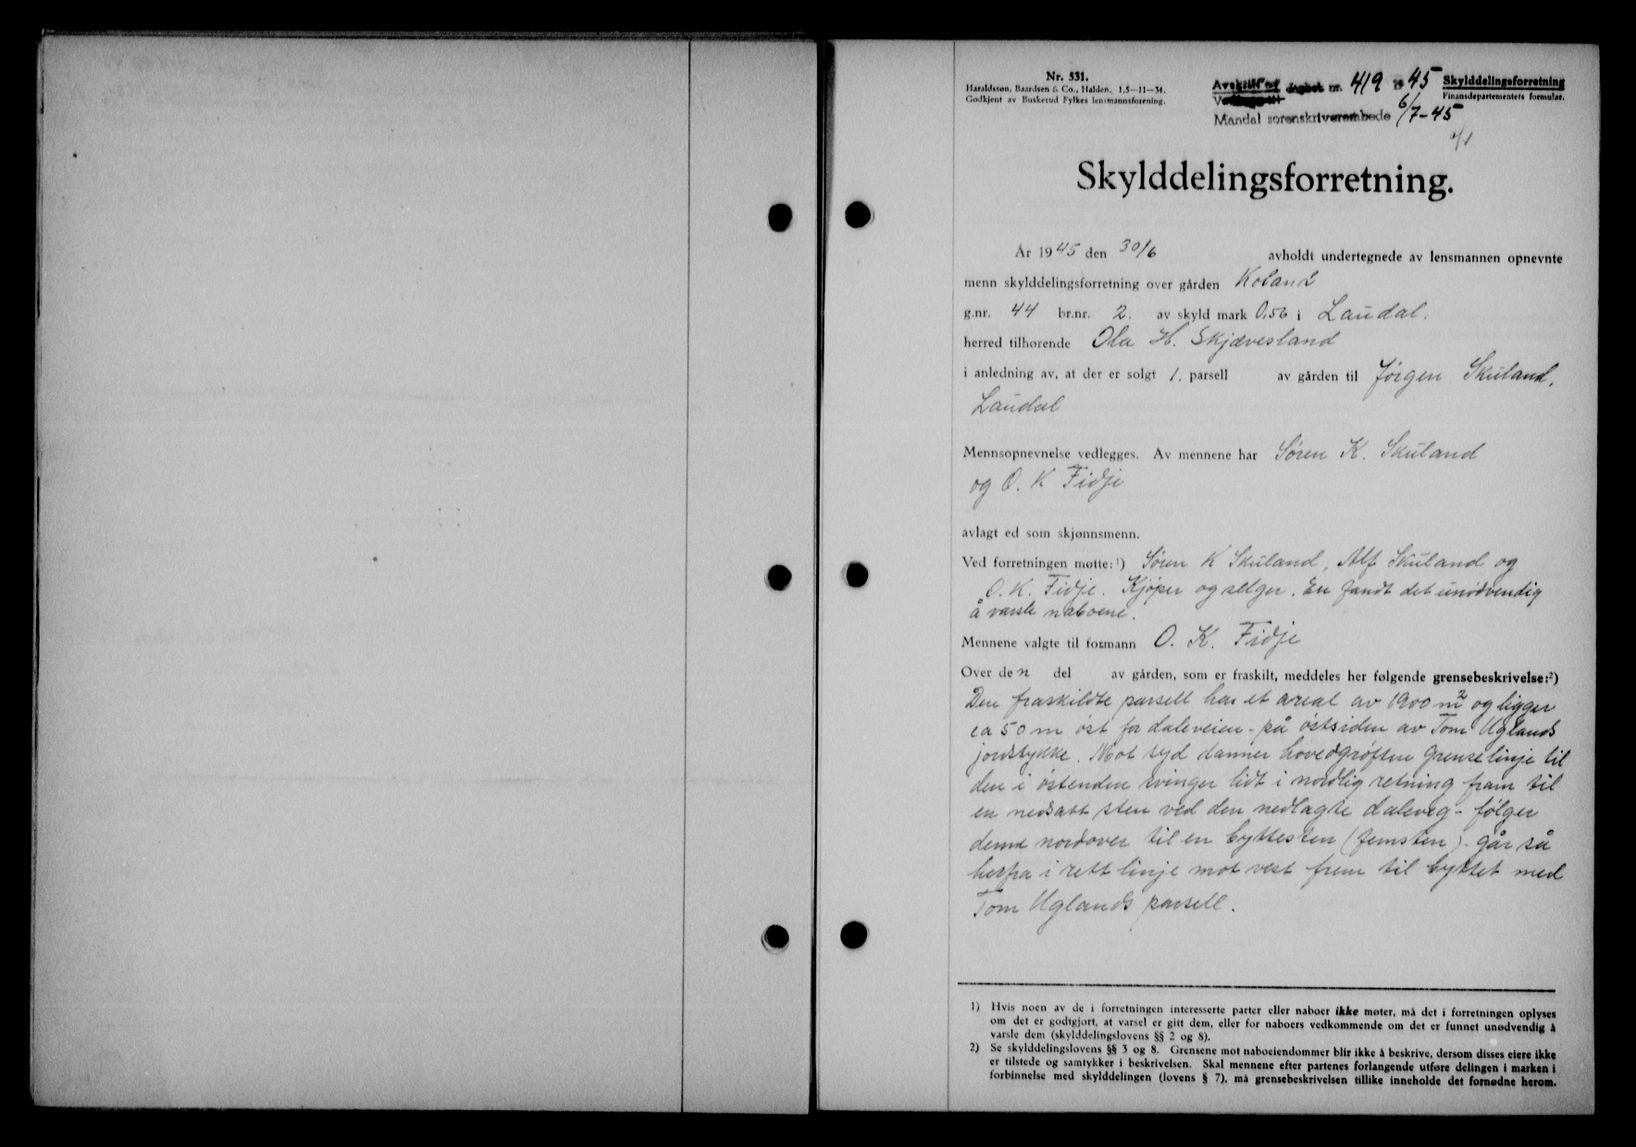 Nr. 531.
Haraldssøn, Baardsen & Co., Halden. 1.5—11—34.
Godkjent av Buskerud Fylkes lensmannsforening.
dagbok nr. 419 19 45
Mandal sorenskriverembede 6/7-45
Skylddelingsforretning
Finansdepartementets formular.
Skylddelingsforretning.
År 1945 den 30/6 avholdt undertegnede av lensmannen opnevnte
menn skylddelingsforretning over gården Koland
g.nr. 44 br.nr. 2. av skyld mark 0,56 i Laudal.
herred tilhørende Ola H. Skjævesland
i anledning av, at der er solgt 1. parsell av gården til Jørgen Skuland,
Laudal
Mennsopnevnelse vedlegges. Av mennene har Søren K. Skuland
og O. K Fidje
avlagt ed som skjønnsmenn.
Ved forretningen møtte:¹) Søren K Skuland, Alf Skuland og
O. K. Fidje. Kjøper og selger. En fandt det unødvendig
å varsle naboene.
Mennene valgte til formann O. K. Fidje
Over den del av gården, som er fraskilt, meddeles her følgende grensebeskrivelse:²)
Den fraskildte parsell har et areal av 1900 m² og ligger
ca 50 m øst for daleveien - på østsiden av Tom Uglands
jordstykke. Mot syd danner hovedgrøften grenselinje til
den i østenden svinger lidt i nordlig retning fram til
en nedsatt sten ved den nedlagte daleveg - følger
denne nordover til en byttesten (femsten) - går så
herfra i rett linje mot vest frem til byttet med
Tom Uglands parsell.
1) Hvis noen av de i forretningen interesserte parter eller naboer ikke møter, må det i forretningen oplyses
om det er godtgjort, at varsel er gitt dem, eller for naboers vedkommende om det er funnet unødvendig å
varsle dem (skylddelingslovens §§ 2 og 8).
2) Se skylddelingslovens §§ 3 og 8. Grensene mot naboeiendommer blir ikke å beskrive, dersom disses eiere ikke
er tilstede og samtykker i beskrivelsen. Skal mennene efter partenes forlangende utføre delingen i marken i
forbinnelse med skylddelingen (lovens § 7), må grensebeskrivelsen tillike inneholde det fornødne herom.